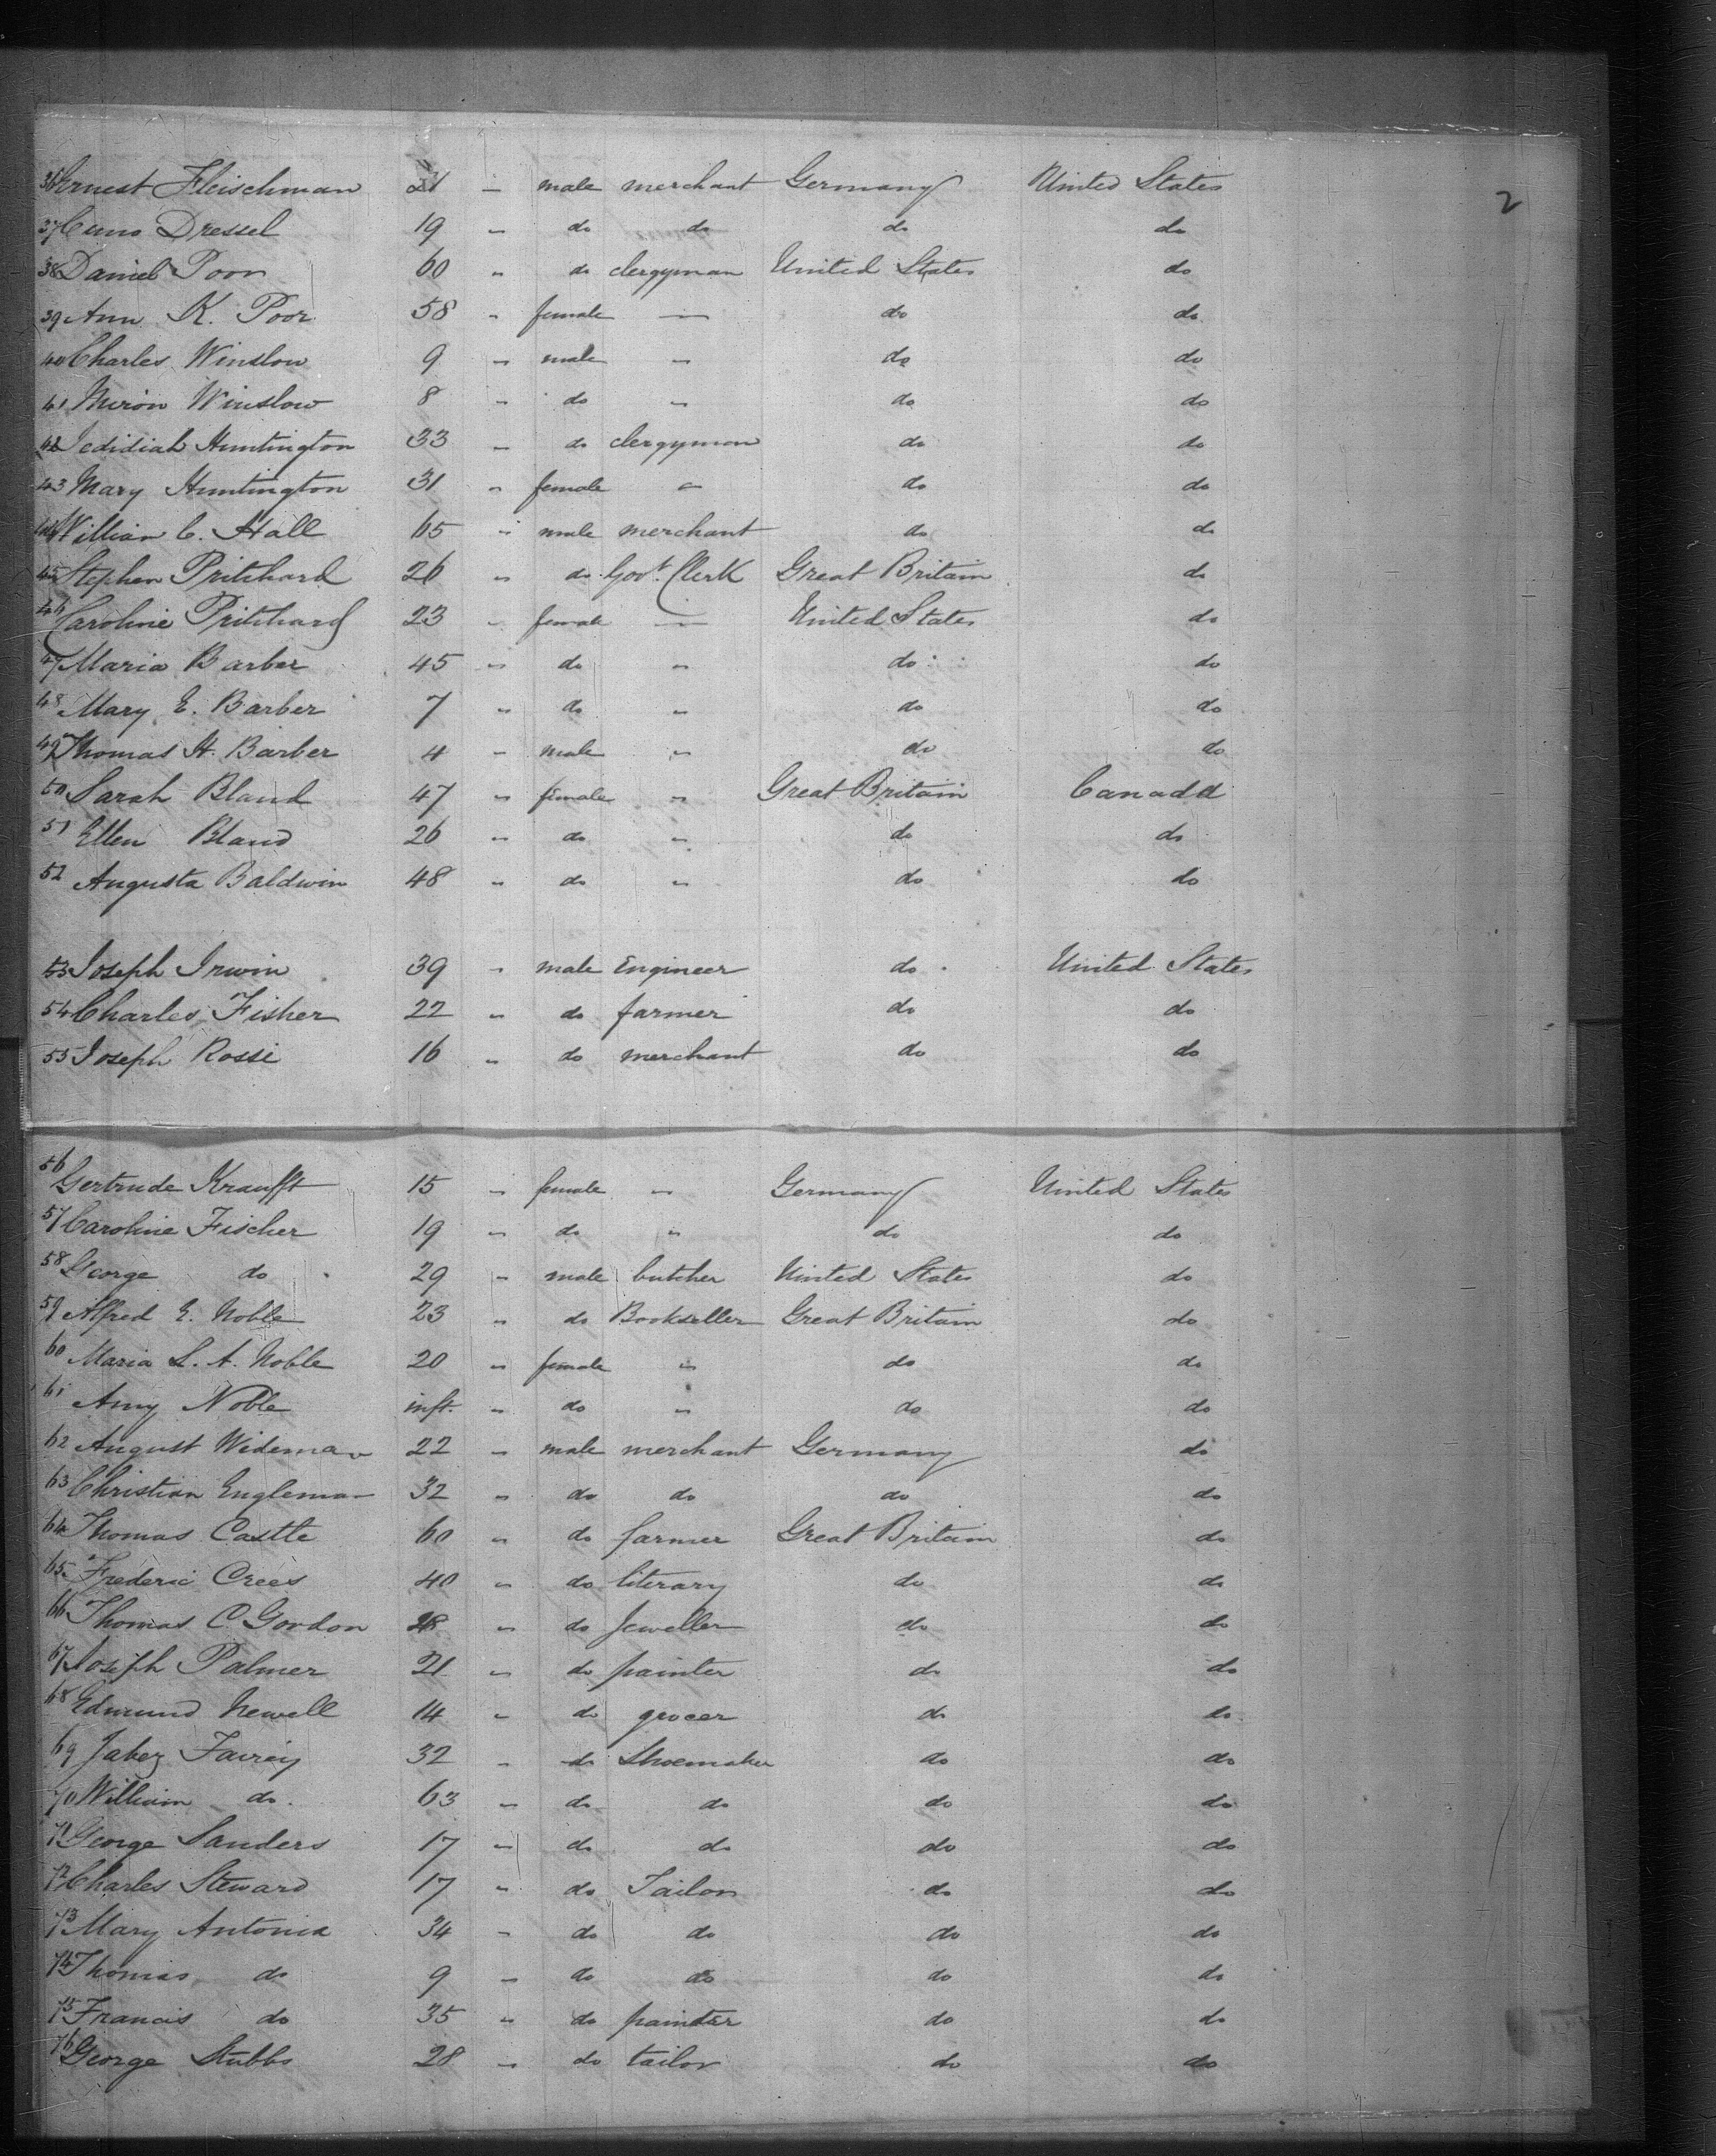 2
36 Ernest Fleischman 21 " male merchant Germany United States
37 Cuno Dressel 19 " do do do do
38 Daniel Poor 60 " do clergyman United States do
39 Ann K. Poor 58 " female — do do
40 Charles Winslow 9 " male " do do
41 Miron Winslow 8 " do " do do
42 Jedidiah Huntington 33 " do clergyman do do
43 Mary Huntington 31 " female " do do
44 William C. Hall 65 " male merchant do do
45 Stephen Pritchard 26 " do Govt. Clerk Great Britain do
46 Caroline Pritchard 23 " female — United States do
47 Maria Barber 45 " do " do do
48 Mary E. Barber 7 " do " do do
49 Thomas H. Barber 4 " male " do do
50 Sarah Bland 47 " female " Great Britain Canada
51 Ellen Bland 26 " do " do do
52 Augusta Baldwin 48 " do " do do
53 Joseph Irwin 39 " male Engineer do United States
54 Charles Fisher 22 " do farmer do do
55 Joseph Rossi 16 " do merchant do do
56 Gertrude Kraufft 15 " female " Germany United States
57 Caroline Fischer 19 " do " do do
58 George do 29 " male butcher United States do
59 Alfred E. Noble 23 " do Bookseller Great Britain do
60 Maria L. A. Noble 20 " female " do do
61 Amy Noble inft. " do " do do
62 August Wideman 22 " male merchant Germany do
63 Christian Engleman 32 " do do do do
64 Thomas Castle 60 " do farmer Great Britain do
65 Frederic Crees 40 " do literary do do
66 Thomas C. Gordon 28 " do Jeweller do do
67 Joseph Palmer 21 " do painter do do
68 Edmund Newell 14 " do grocer do do
69 Jabez Fairey 32 " do Shoemaker do do
70 William do. 63 " do do do do
71 George Sanders 17 " do do do do
72 Charles Steward 17 " do Tailor do do
73 Mary Antonia 34 " do do do do
74 Thomas do 9 " do do do do
75 Francis do 35 " do painter do do
76 George Stubbs 28 " do tailor do do